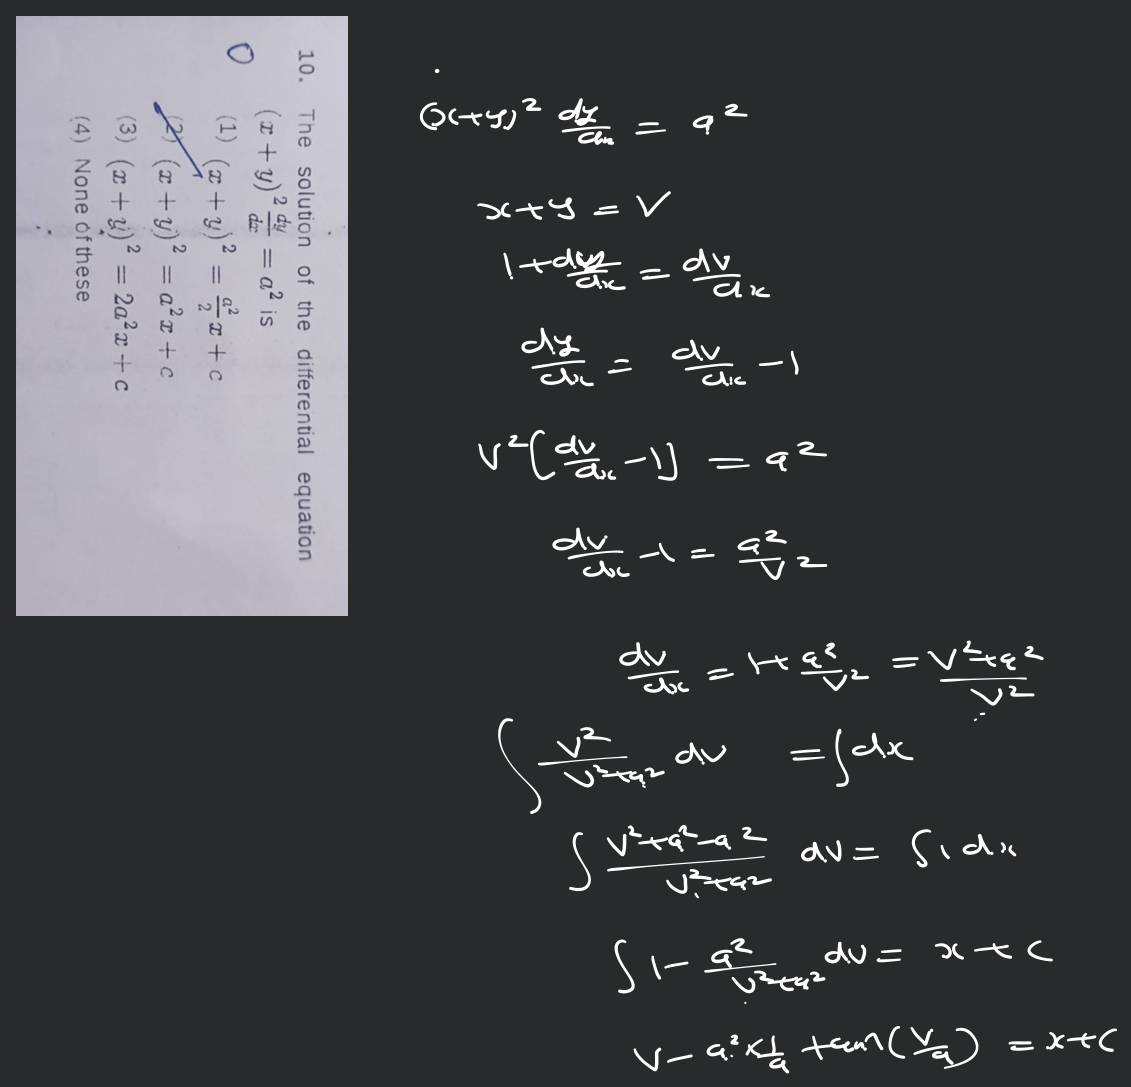 10. The solution of the differential equation
(x + y)² dy/dx = a² is
(1) (x + y)² = a²/2 x + c
(2) (x + y)² = a²x + c
(3) (x + y)² = 2a²x + c
(4) None of these
(x+y)² dy/dx = a²
x+y = V
1+dy/dx = dv/dx
dy/dx = dv/dx - 1
V²[dv/dx - 1] = a²
dv/dx - 1 = a²/V²
dv/dx = 1+ a²/V² = V²+a²/V²
∫ V²/V²+a² dv = ∫dx
∫ V²+a²-a²/V²+a² dv = ∫1 dx
∫ 1- a²/V²+a² dv = x + c
V - a² × 1/a tan⁻¹(V/a) = x+c